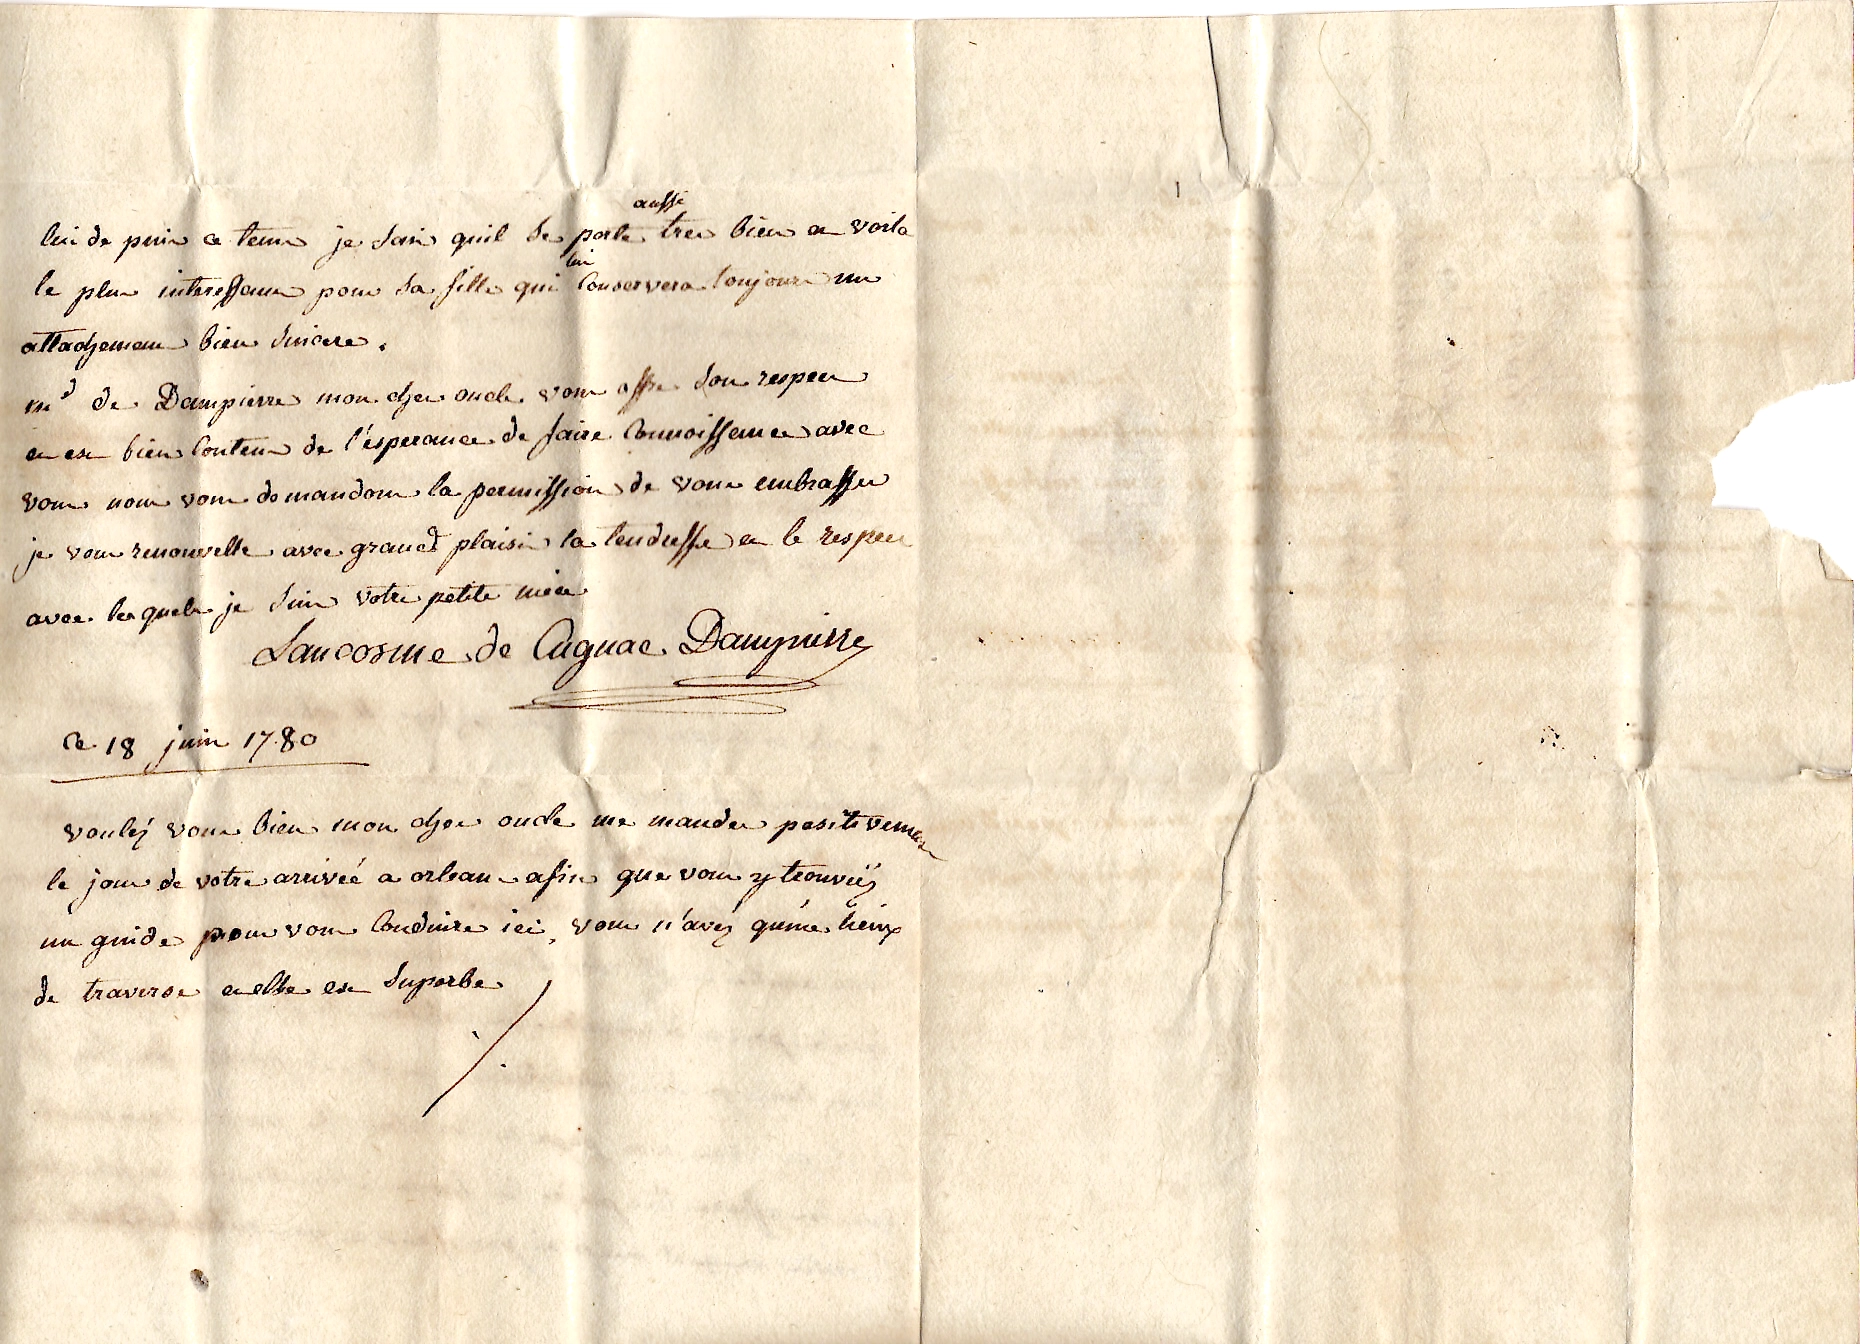 lui de puis ce tems je sais quil se porte aussi tres bien et voila
le plus interessant pour sa fille qui lui conservera toujours un
attachement bien sincere.
md de Dampierre mon cher oncle vous offre son respect
et est bien content de l'esperance de faire connoissance avec
vous nous vous demandons la permission de vous embrasser
je vous renouvelle avec grand plaisir la tendresse et le respect
avec lesquels je suis votre petite niece
Lancosme de Cugnac Dampierre
ce 18 juin 1780
voulés vous bien mon cher oncle me mander positivement
le jour de votre arrivée a orleans afin que vous y trouviés
un guide pour vous conduire ici, vous n'avés qu'une lieux
de traverse et elle est superbe